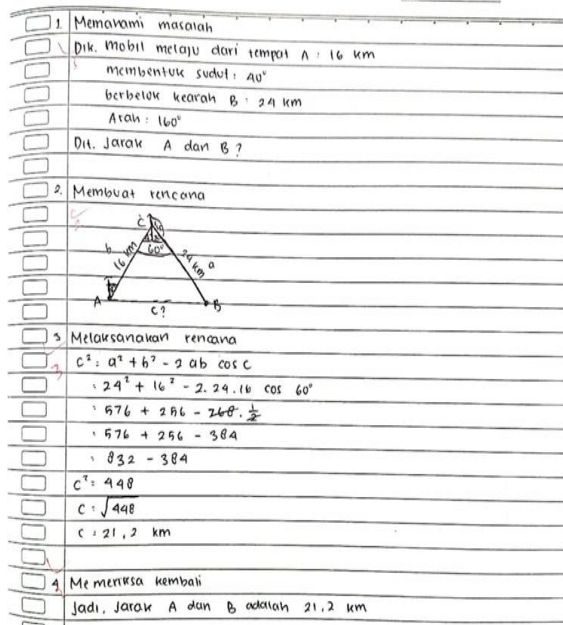 1. Memahami masalah
Dik. mobil melaju dari tempat A : 16 km
membentuk sudut : 40°
berbelok kearah B : 24 km
Arah : 160°
Dit. Jarak A dan B ?
2. Membuat rencana
C
b
16 km
60°
24 km
a
A
B
C?
3 Melaksanakan rencana
c² : a² + b² - 2 ab cos C
: 24² + 16² - 2. 24. 16 cos 60°
: 576 + 256 - 768. 1/2
: 576 + 256 - 384
: 832 - 384
c² : 448
C : √448
C : 21,2 km
4 Memeriksa kembali
Jadi, Jarak A dan B adalah 21,2 km